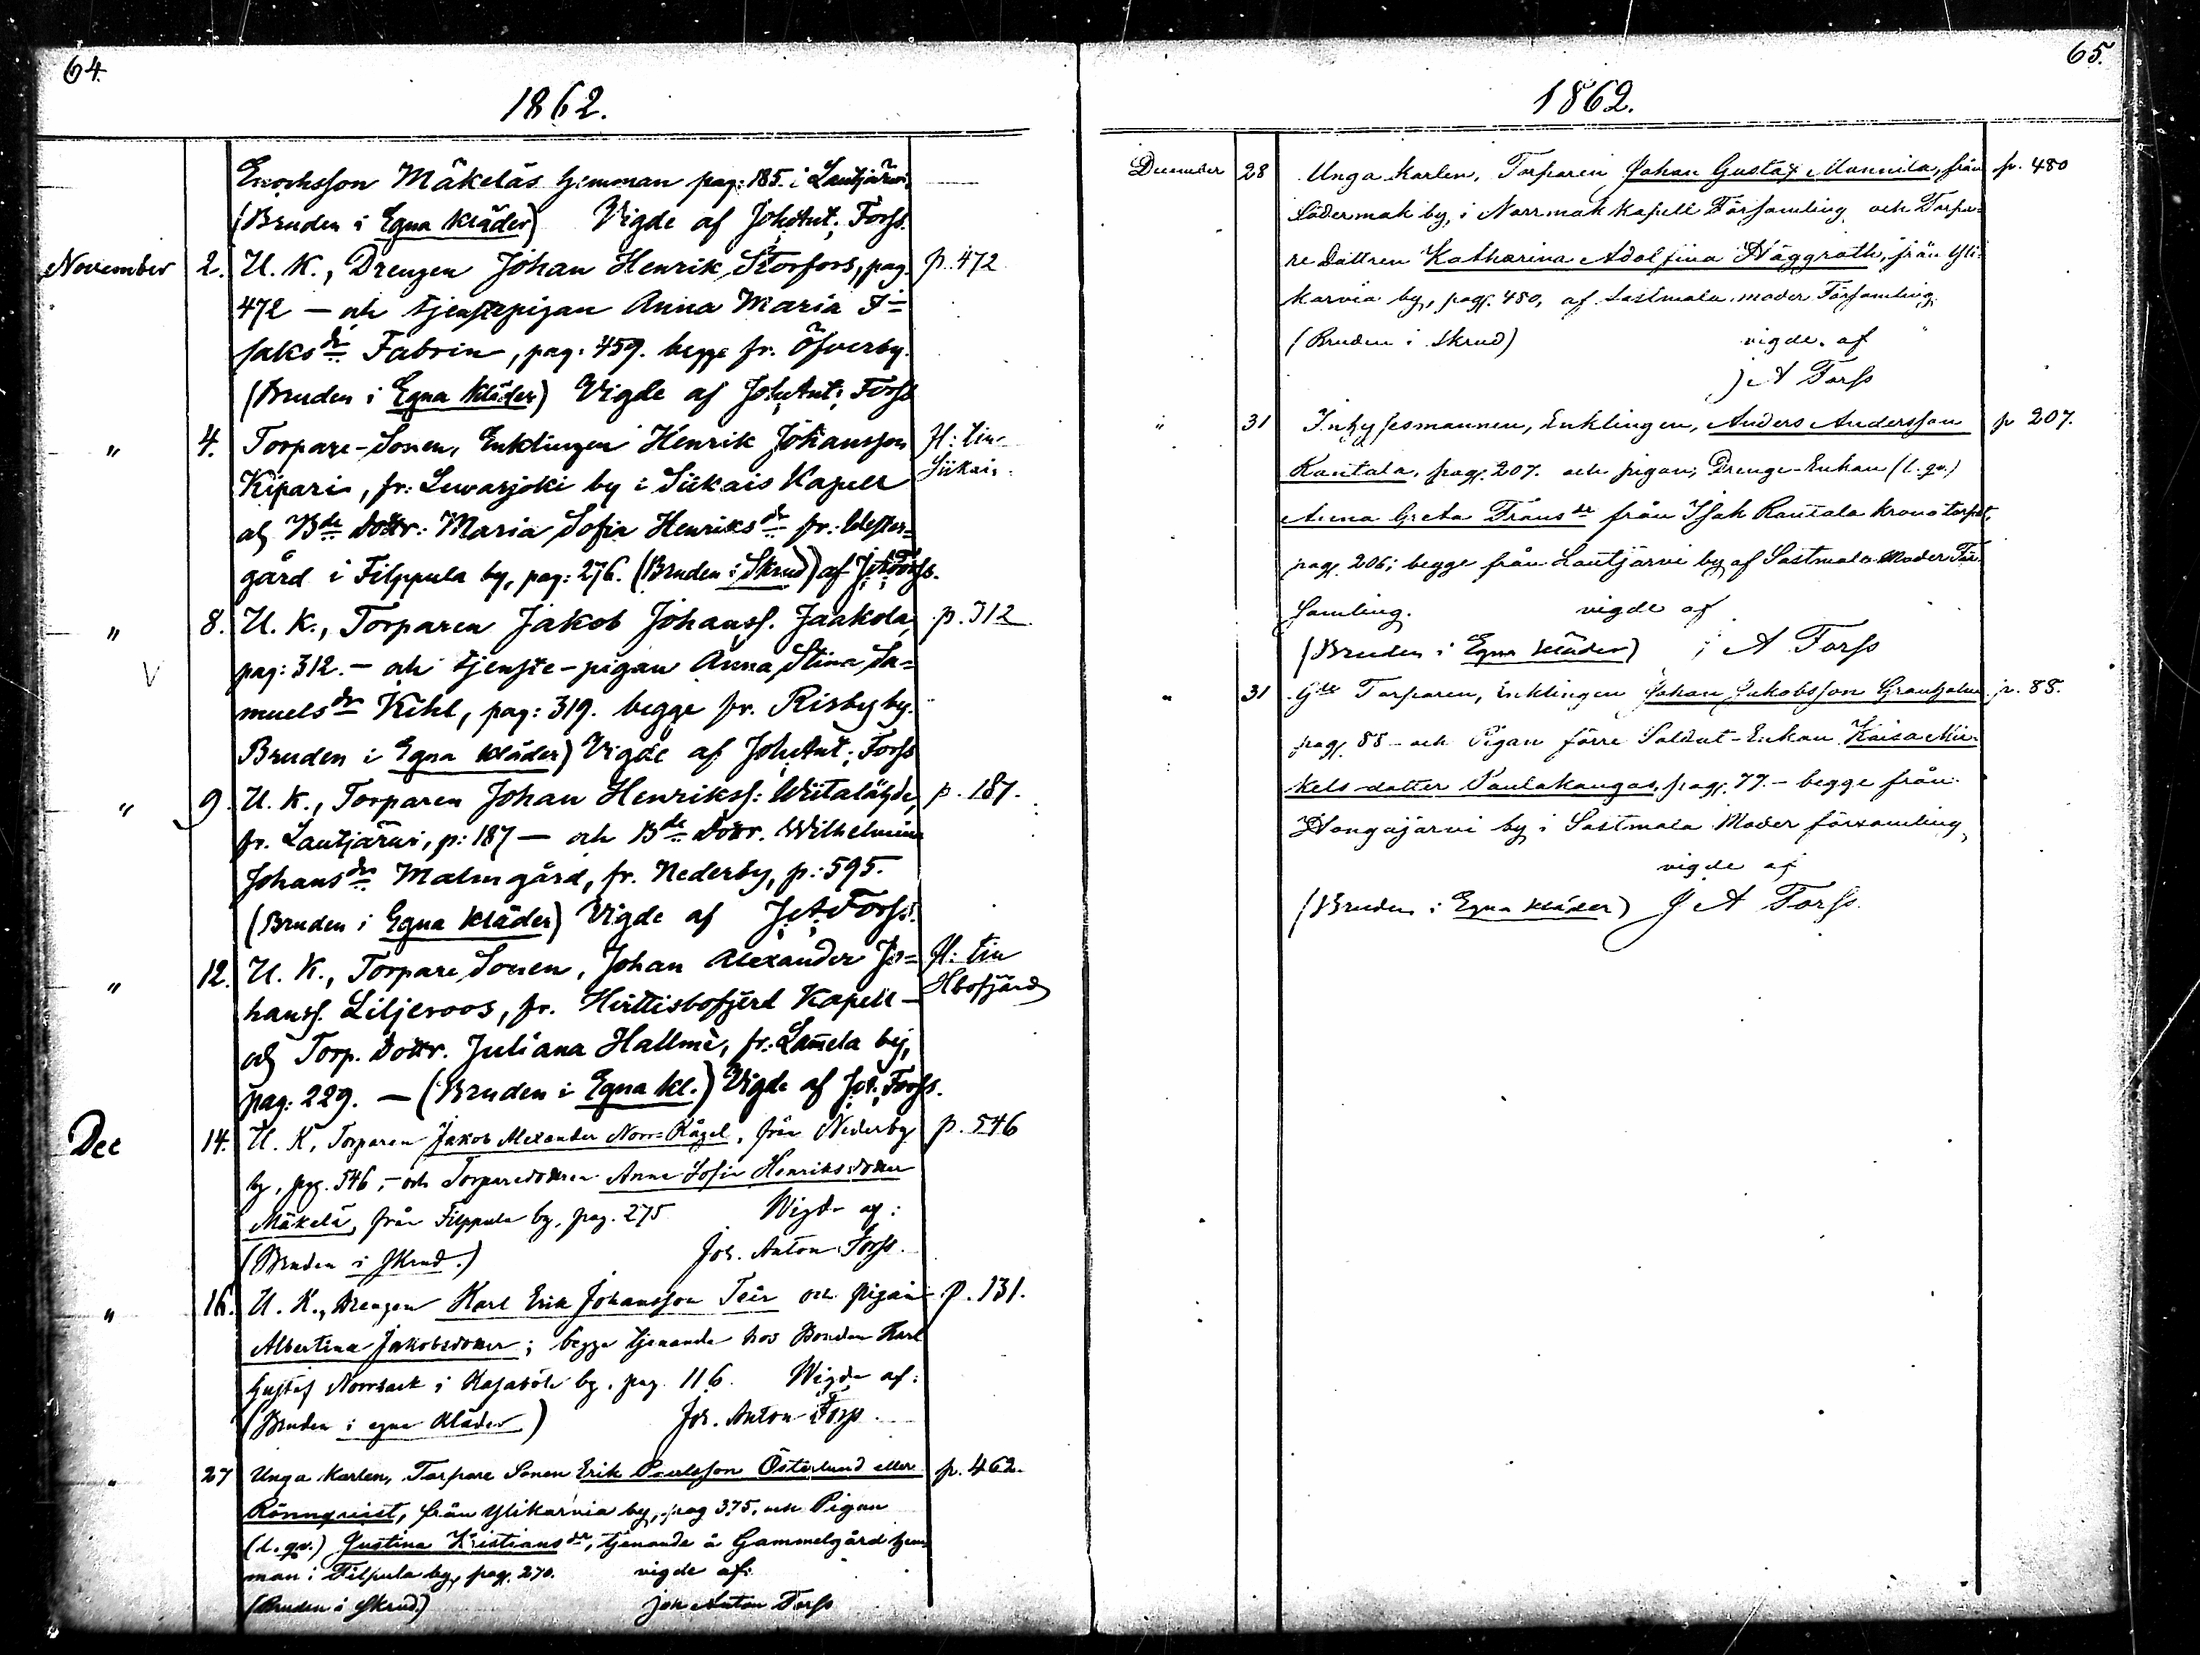 64.
1862.
Enochsson Mäkeläs hemman pag: 185. i Lautjärvi.
(Bruden i Egna kläder) Vigde af Joh Ant; Forss.
November 2. U. K., Drengen Johan Henrik Storfors, pag. p. 472
472 — och tjenstepigan Anna Maria I=
saksdr Fabrin, pag: 459. begge fr. Öfverby.
(Bruden i Egna kläder) Vigde af Joh Ant; Forss
" 4. Torpare-Sonen, Enklingen Henrik Johansson fl: tin
Kipari, fr: Lewasjoki by i Siikais Kapell Siikais.
och Bde Dottr: Maria Sofia Henriksdr fr: Wester=
gård i Filppula by, pag: 276. (Bruden i Skrud) af J A Forss.
" 8. U. K., Torparen Jakob Johanss. Jaakola, p. 312.
pag: 312. — och tjenste-pigan Anna Stina Sa=
muelsdr Kihl, pag: 319. begge fr. Risby by.
Bruden i Egna kläder) Vigde af Joh Ant; Forss
" 9. U. K., Torparen Johan Henrikss: Wiitalähde, p. 187.
fr. Lautjärwi, p: 187 — och Bde Dottr. Wilhelmina
Johansdr Malmgård, fr. Nederby, p: 595.
(Bruden i Egna kläder) Vigde af J A Forss.
" 12. U. K., Torpare Sonen, Johan Alexander Jo= fl: tin
hanss. Liljeroos, fr. Hvittisbofjerd Kapell — Hbofjärd
och Torp. Dottr. Juliana Hallmè, fr: Lamela by,
pag: 229. — (Bruden i Egna kl.) Vigde af Joh. Forss.
Dec 14. U. K, Torparen Jakob Alexander Norr-Rågel, från Nederby p. 546
by, pag. 546, - och Torparedottren Anna Sofia Henriksdotter
Mäkelä, från Filppula by, pag. 275 Wigde af:
(Bruden i Skrud.) Joh. Anton Forss.
" 16. U. K., Drengen Karl Erik Johansson Teir och pigan p. 131.
Albertina Jakobsdotter; begge tjenande hos Bonden Karl
Gustaf Norrback i Kasaböle by, pag. 116. Wigde af:
(Bruden i egna kläder) Joh. Anton Forss.
" 27 Unga Karlen, Torpare Sonen Erik Paulsson Österlund eller p. 462.
Rönnqvist, från Ylikarvia by, pag 375. och Pigan
(l. qv.) Justina Kristiansdr, tjenande å Gammelgård hem=
man i Filpula by, pag. 270. vigde af:
(Bruden i Skrud.) Joh Anton Forss
65.
1862.
December 28 Unga Karlen, Torparen Johan Gustaf Mannila, från p. 480
Södermark by, i Norrmark kapell Församling och Torpa=
re Dottren Katharina Adolfina Häggroth, från Yli=
karvia by, pag. 480, af Sastmola moder Församling.
(Bruden i Skrud) vigde af
J A Forss
" 31 Inhysesmannen, Enklingen, Anders Andersson p 207.
Rantala, pag. 207. och pigan, Drenge-Enkan (l. qv.)
Anna Greta Fransdr från Isak Rantala kronotorp,
pag. 206; begge från Lautjärvi by af Sastmola Moder För=
samling. vigde af
(Bruden i Egna kläder) J A Forss
" 31 Gde Torparen, Enklingen Johan Jakobsson Grantholm p. 88.
pag. 88 - och Pigan förre Soldat-Enkan Kaisa Mi=
kelsdotter Paulakangas, pag. 77. - begge från
Hongajärvi by i Sastmola Moder församling,
vigde af
(Bruden i Egna kläder) J A Forss.